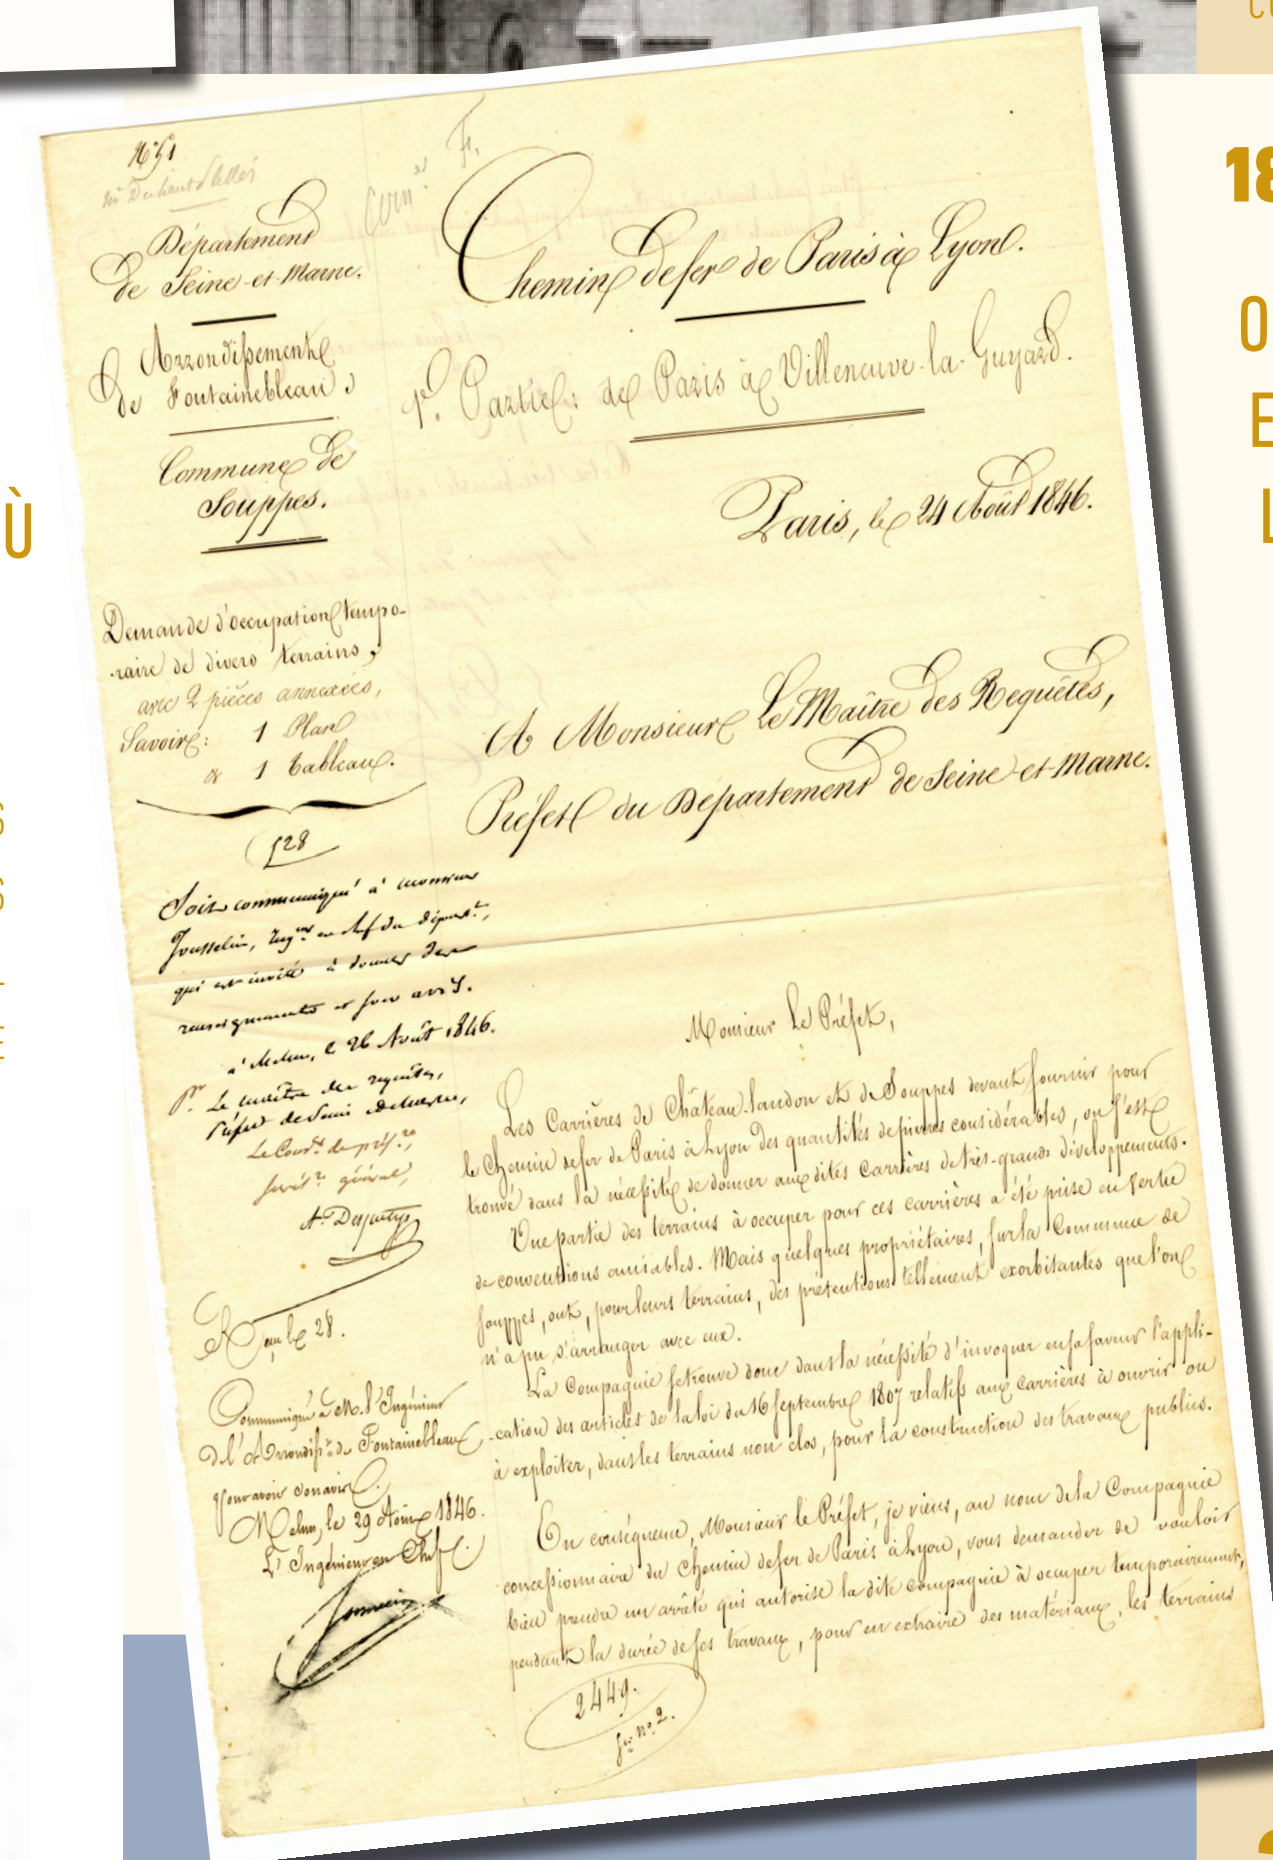 N° 51
Département
de Seine-et-Marne.
Arrondissement
de Fontainebleau
Commune de
Souppes.
Demande d'occupation tempo-
-raire de divers terrains,
avec 2 pièces annexées,
Savoir: 1 Plan
& 1 Tableau.
528
Soit communiqué à monsieur
Jousselin, Ingr en chef du départt,
qui est invité à donner des
renseignements et son avis.
à Melun, le 26 Août 1846.
Pr Le maître des requêtes,
Préfet de Seine et Marne,
Le Conser de préfre,
secrétre général,
R le 28.
Communiqué à M. l'Ingénieur
de l'Arrondisst de Fontainebleau
pour avoir son avis.
Melun, le 29 Août 1846.
L'Ingénieur en Chef
Chemin de fer de Paris à Lyon.
1re Partie: de Paris à Villeneuve-la-Guyard.
Paris, le 24 Août 1846.
A Monsieur Le Maître des Requêtes,
Préfet du Département de Seine-et-Marne.
Monsieur Le Préfet,
Les Carrières de Château-Landon et de Souppes devant fournir pour
le Chemin de fer de Paris à Lyon des quantités de pierres considérables, on s'est
trouvé dans la nécessité de donner aux dites carrières de très-grands développements.
Une partie des terrains à occuper pour ces carrières a été prise en vertu
de conventions amiables. Mais quelques propriétaires, sur la Commune de
Souppes, ont, pour leurs terrains, des prétentions tellement exorbitantes que l'on
n'a pu s'arranger avec eux.
La Compagnie se trouve donc dans la nécessité d'invoquer en sa faveur l'appli-
-cation des articles de la loi du 16 septembre 1807 relatifs aux carrières à ouvrir ou
à exploiter, dans les terrains non clos, pour la construction des travaux publics.
En conséquence, Monsieur le Préfet, je viens, au nom de la Compagnie
concessionnaire du Chemin de fer de Paris à Lyon, vous demander de vouloir
bien prendre un arrêté qui autorise la dite compagnie à occuper temporairement,
pendant la durée de ses travaux, pour en extraire des matériaux, les terrains
2449.
no 2.
Ù
18
O
E
L